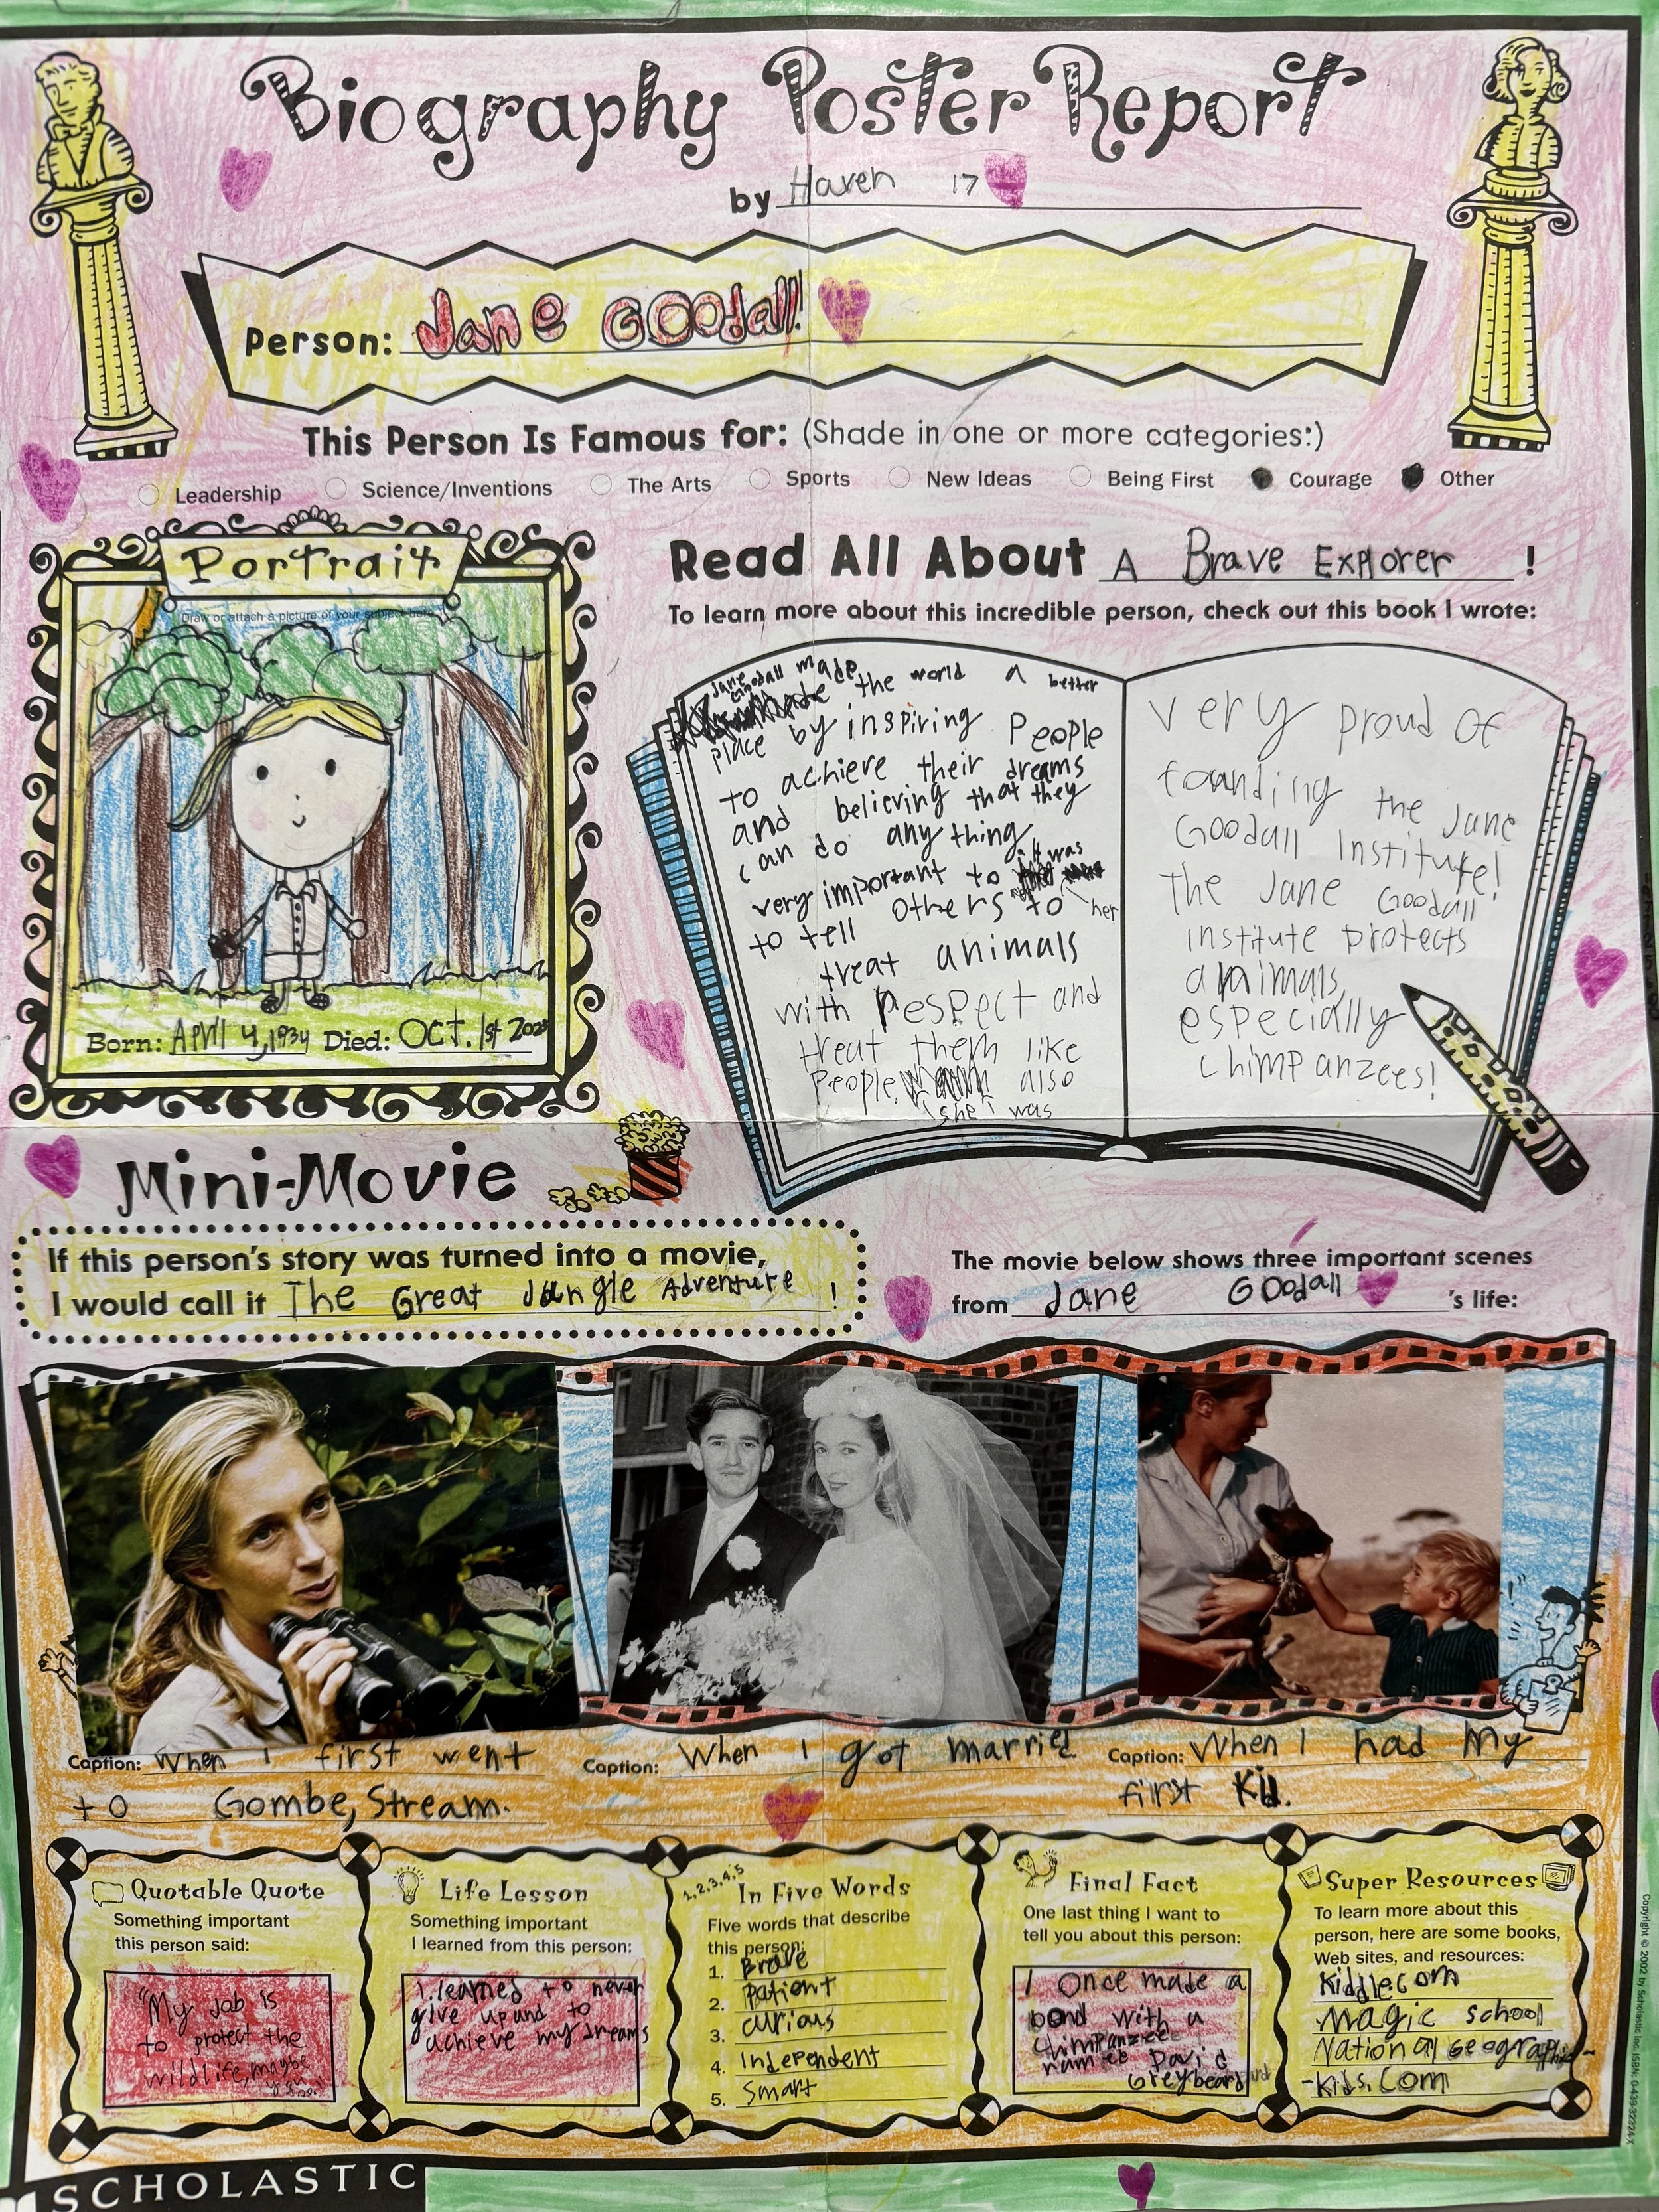 Biography Poster Report
by Haven 17
Person: Jane Goodall!
This Person Is Famous for: (Shade in one or more categories:)
Leadership Science/Inventions The Arts Sports New Ideas Being First Courage Other
Portrait
Draw or attach a picture of your subject here.
Born: April 4, 1934 Died: Oct. 1st 2025
Read All About A Brave Explorer !
To learn more about this incredible person, check out this book I wrote:
Jane Goodall made the world a better
place by inspiring People
to achieve their dreams
and believing that they
can do any thing.
very important to it was
to tell others to her
treat animals
with respect and
treat them like
People. also
she was
very proud of
founding the Jane
Goodall Institute!
The Jane Goodall
institute protects
animals,
especially
chimpanzees!
Mini-Movie
If this person's story was turned into a movie,
I would call it The Great Jungle Adventure !
The movie below shows three important scenes
from Jane Goodall 's life:
Caption: When I first went
to Gombe, Stream.
Caption: When I got married
Caption: When I had My
first Kid.
Quotable Quote
Something important
this person said:
"My Job is
to protect the
wildlife, maybe
Life Lesson
Something important
I learned from this person:
I learned to never
give up and to
achieve my dreams
1,2,3,4,5
In Five Words
Five words that describe
this person:
1. Brave
2. Patient
3. curious
4. Independent
5. Smart
Final Fact
One last thing I want to
tell you about this person:
I Once made a
bond with a
chimpanzee
named David
Greybeard
Super Resources
To learn more about this
person, here are some books,
Web sites, and resources:
Kiddle.com
Magic school
National Geographic-
-Kids.Com
Copyright © 2002 by Scholastic Inc. ISBN: 0-439-32324-X
SCHOLASTIC